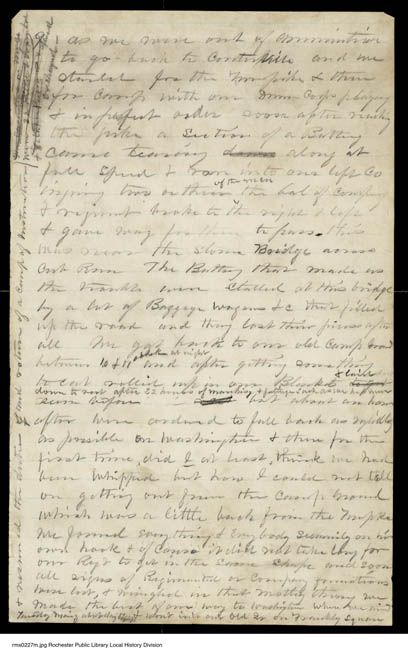 as we were out of ammunition
to go back to Centerville and we
started for the Turnpike & then
for Camp with our Drum Corps playing
& in perfect order soon after reaching
the pike a Section of a Battery
came tearing along at
full speed & ran into our left Co
of the men
injuring two or three the bal of company
& regiment broke to the right & left
& gave way for them to pass. this
was near the stone Bridge across
Cub Run The Battery that made us
the trouble were stalled at this bridge
by a lot of Baggage wagons &c that filled
up the road and they lost their pieces after
all We got back to our old Camp Ground
oclock at night
between 10 & 11 and after getting something
to eat rolled up in our Blankets
down to rest after 22 hours of marching & fatigue such as we had never
seen before but about an hour
after were ordered to fall back as rapidly
as possible on Washington & then for the
first time, did I at least, think we had
been Whipped but how I could not tell
on getting out from the Camp Ground
which was a little back from the Turnpike
we found everything & Everybody seemingly on his
own hook & of Course it did not take long for
our Regt to get in the same shape and soon
all signs of Regimental or Company formations
were lost, & mingled in that motley throng we
made the best of our way to Washington where we arrived
& went into our old Qr. on Franklin Square
& resumed the duties and routine of a Camp of Instruction
rms0227m.jpg Rochester Public Library Local History Division